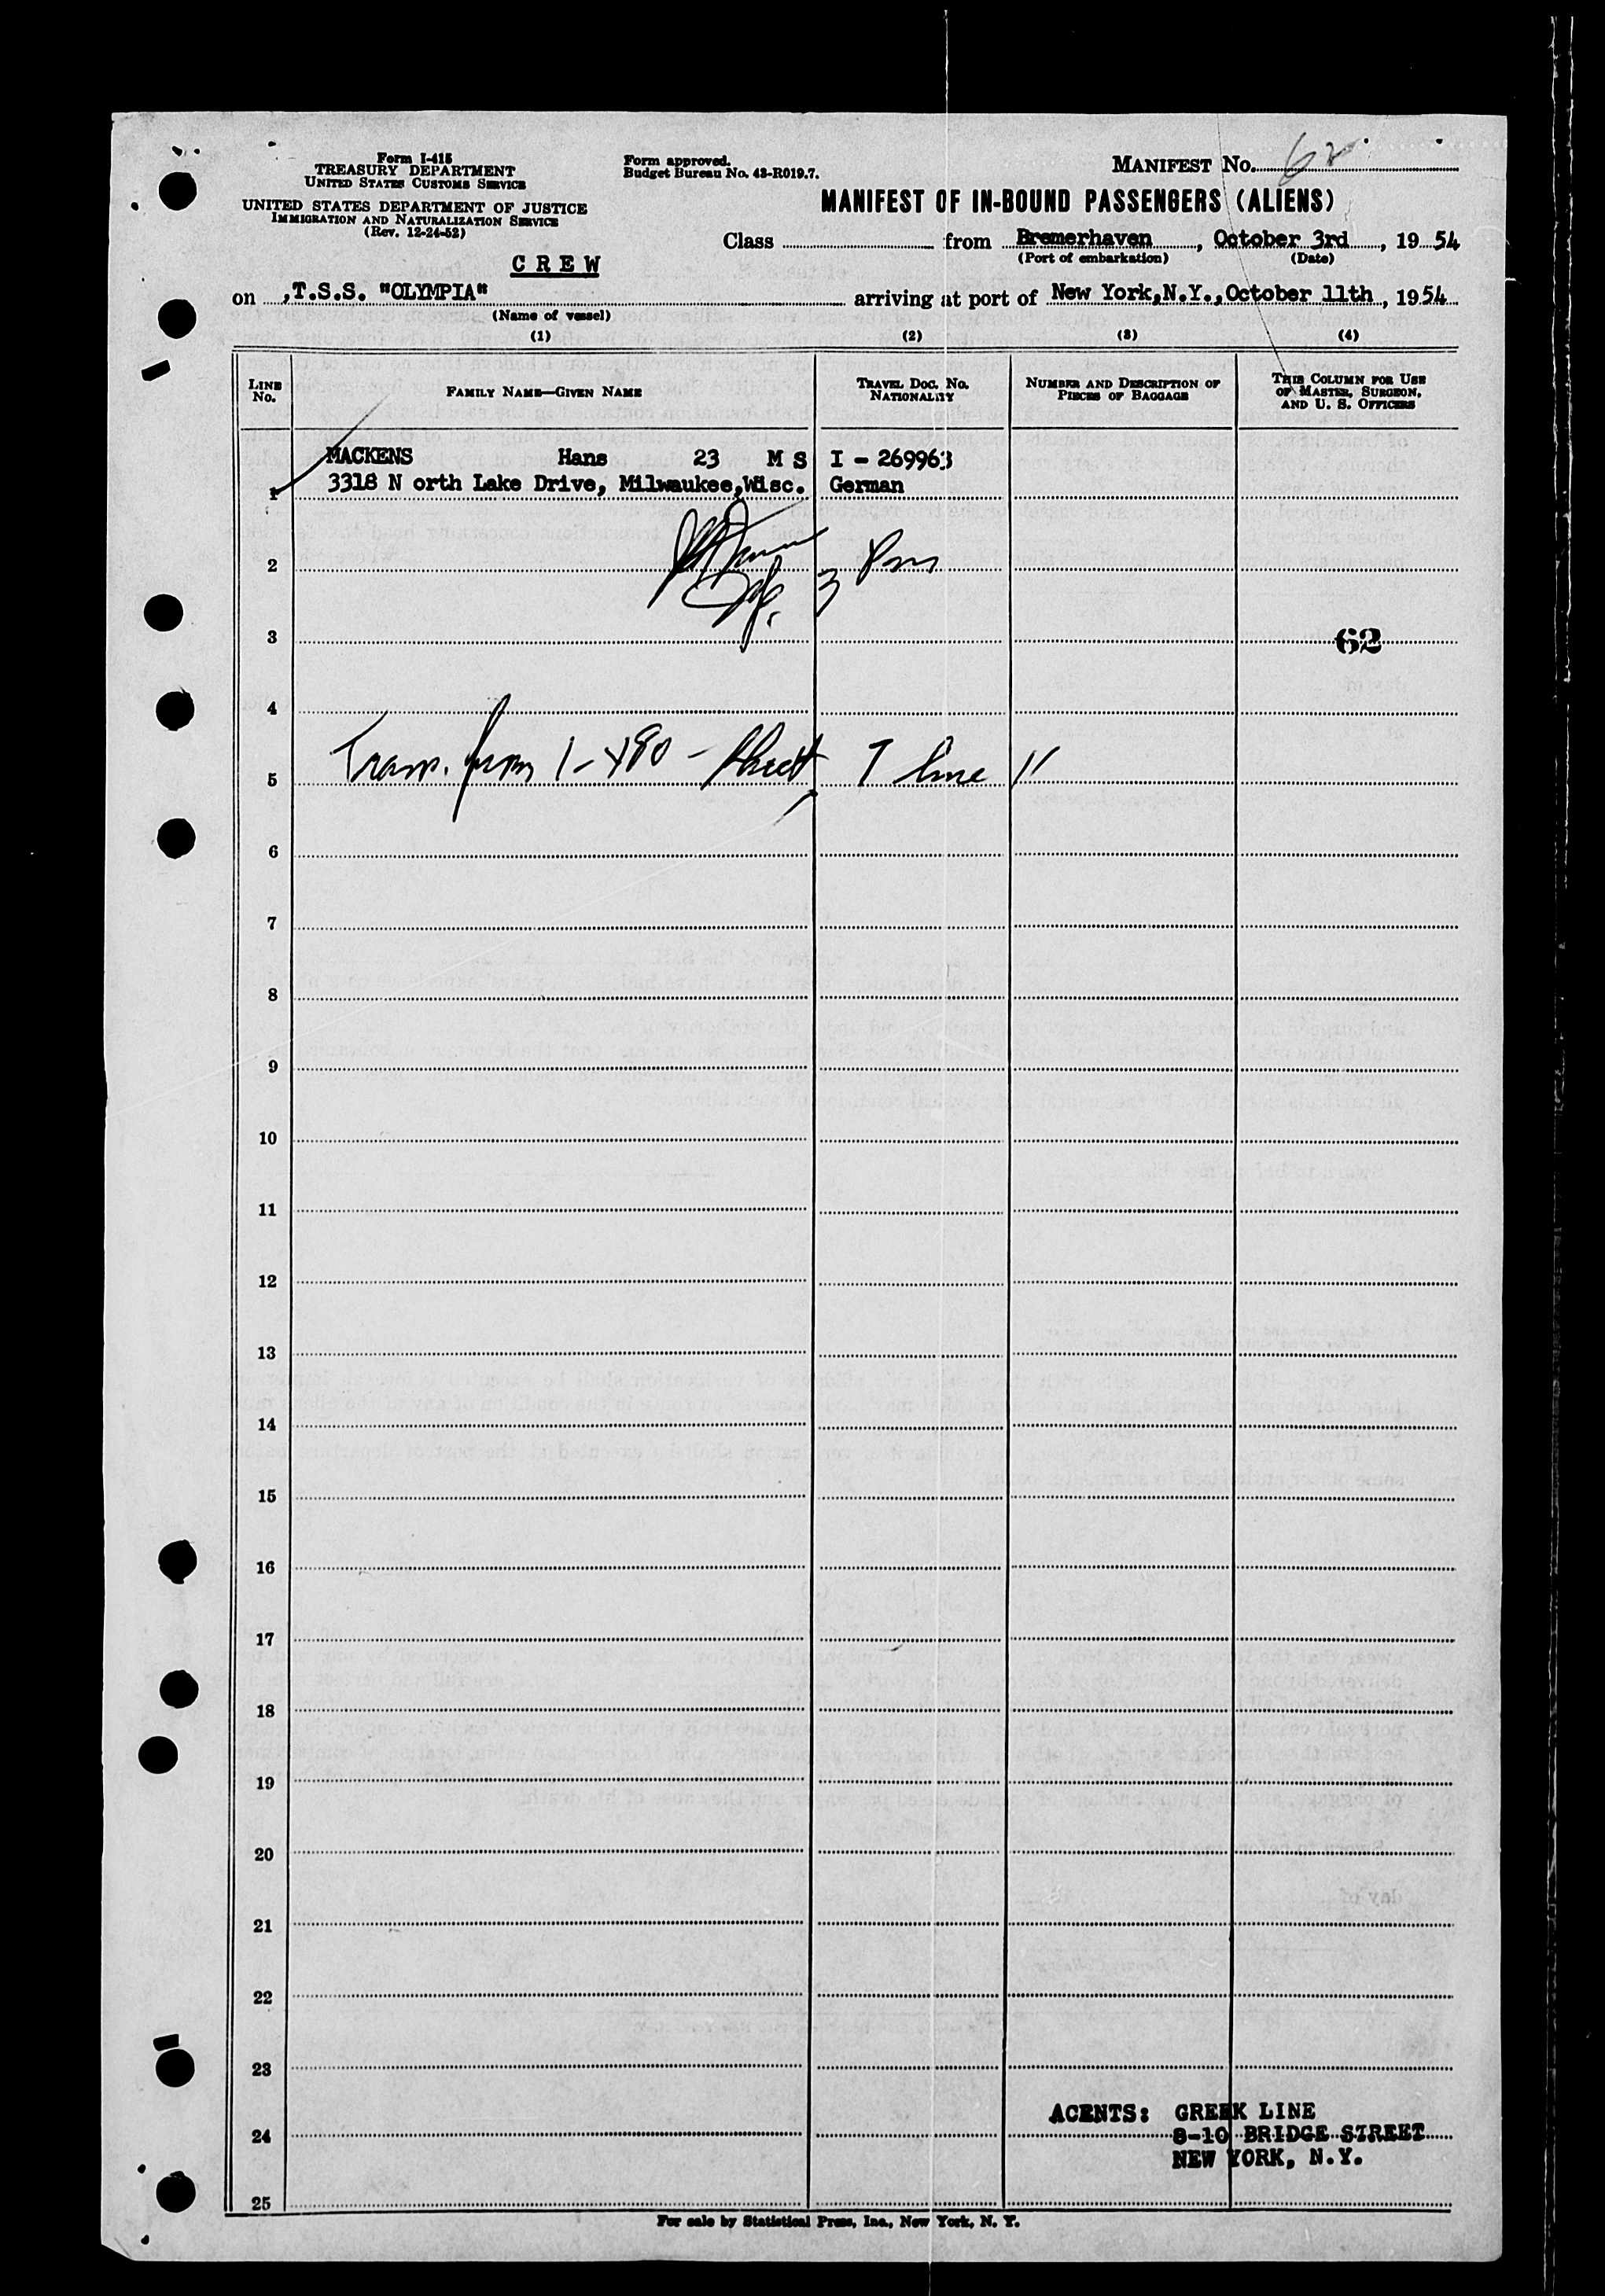 Form I-415
TREASURY DEPARTMENT
UNITED STATES CUSTOMS SERVICE
UNITED STATES DEPARTMENT OF JUSTICE
IMMIGRATION AND NATURALIZATION SERVICE
(Rev. 12-24-52)
Form approved.
Budget Bureau No. 43-R019.7.
MANIFEST No. 62
MANIFEST OF IN-BOUND PASSENGERS (ALIENS)
Class from Bremerhaven, October 3rd, 1954
(Port of embarkation) (Date)
CREW
on ,T.S.S. "OLYMPIA" arriving at port of New York,N.Y., October 11th, 1954
(Name of vessel)
(1) (2) (3) (4)
LINE No. FAMILY NAME—GIVEN NAME TRAVEL DOC. NO. NATIONALITY NUMBER AND DESCRIPTION OF PIECES OF BAGGAGE THIS COLUMN FOR USE OF MASTER, SURGEON, AND U. S. OFFICERS
MACKENS Hans 23 M S I - 269963
1 3318 N orth Lake Drive, Milwaukee,Wisc. German
2
3 62
4
5 Trans. from I-480 - Sheet 7 line 11
6
7
8
9
10
11
12
13
14
15
16
17
18
19
20
21
22
23
AGENTS: GREEK LINE
24 8-10 BRIDGE STREET
NEW YORK, N.Y.
25
For sale by Statistical Press, Inc., New York, N. Y.